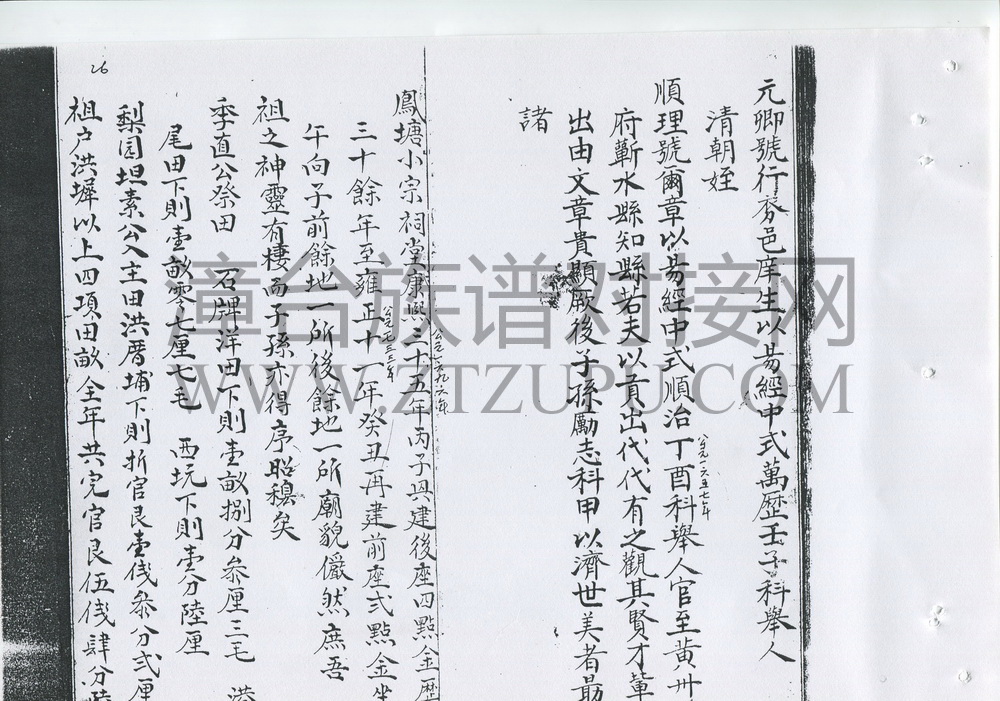 元卿號行㚊邑庠生以易經中式萬歷壬子科舉人
清朝姪
順理號爾章以易經中式順治丁酉科舉人官至黃州
公元一六五七年
府蘄水縣知縣若夫以貢出代代有之觀其賢才輩
出由文章貴顯厥後子孫勵志科甲以濟世美者最
諸
鳳塘小宗祠堂康熙三十五年丙子興建後座四點金歷
公元一六九六年
三十餘年至雍正十一年癸丑再建前座弍點金坐
公元一七三三年
午向子前餘地一所後餘地一所廟貌儼然庶吾
祖之神靈有棲而子孫亦得序昭穆矣
季直公祭田 石牌洋田下則壹畝捌分叁厘三毛
尾田下則壹畝零七厘七毛 西坑下則壹分陸厘
梨园坦素公入主田洪厝埔下則折官艮壹伐叅分弍厘
祖户洪墀以上四項田畝全年共完官艮伍伐肆分
26
漳台族谱对接网
WWW.ZTZUPU.COM